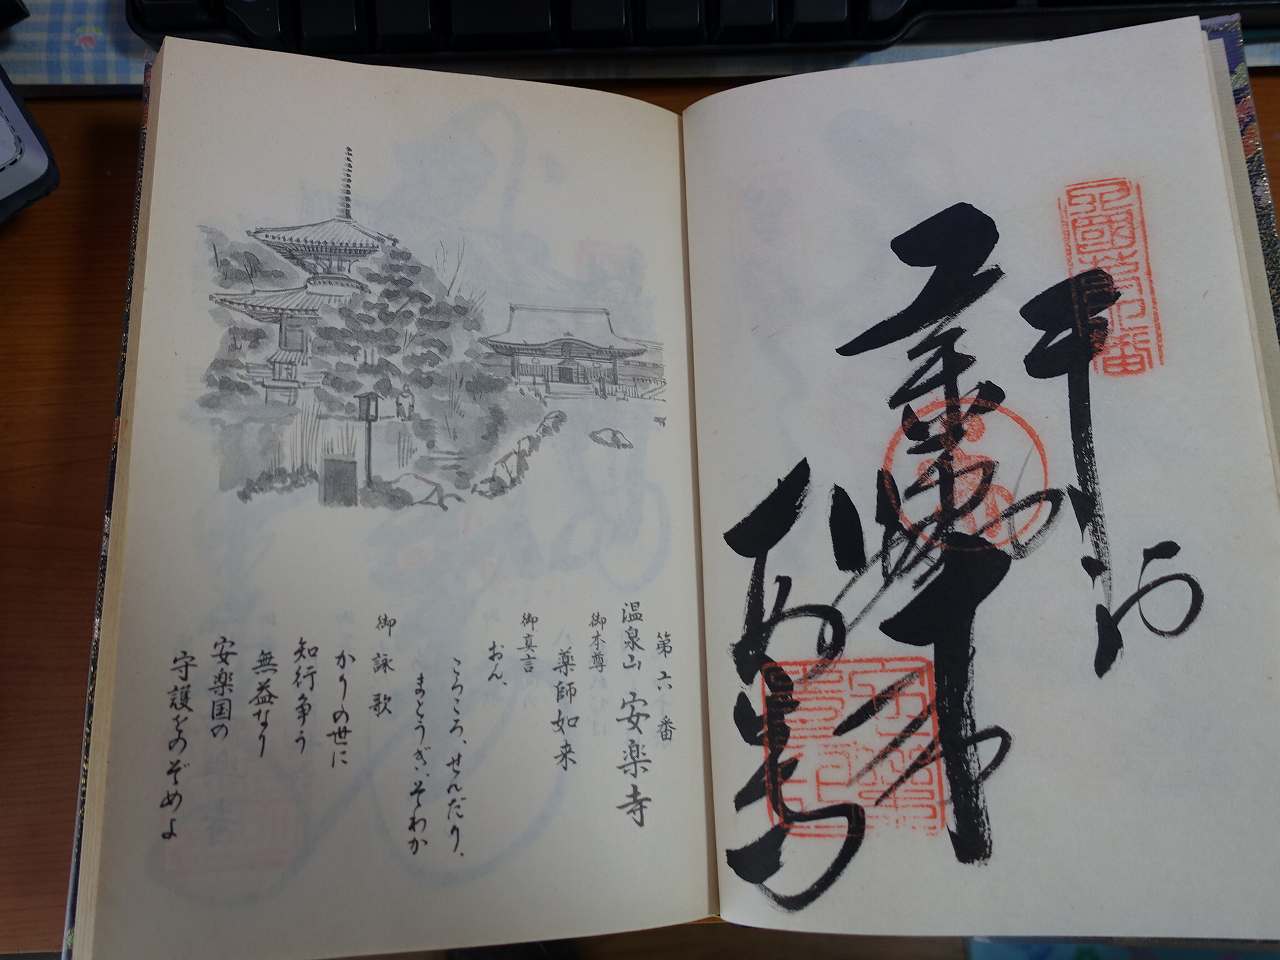 奉納
四國第六番
薬師如来
安楽寺
第六番
温泉山 安楽寺
御本尊
薬師如来
御真言
おん、
ころころ、せんだり、
まとうぎ、そわか
御詠歌
かりの世に
知行争う
無益なり
安楽国の
守護をのぞめよ